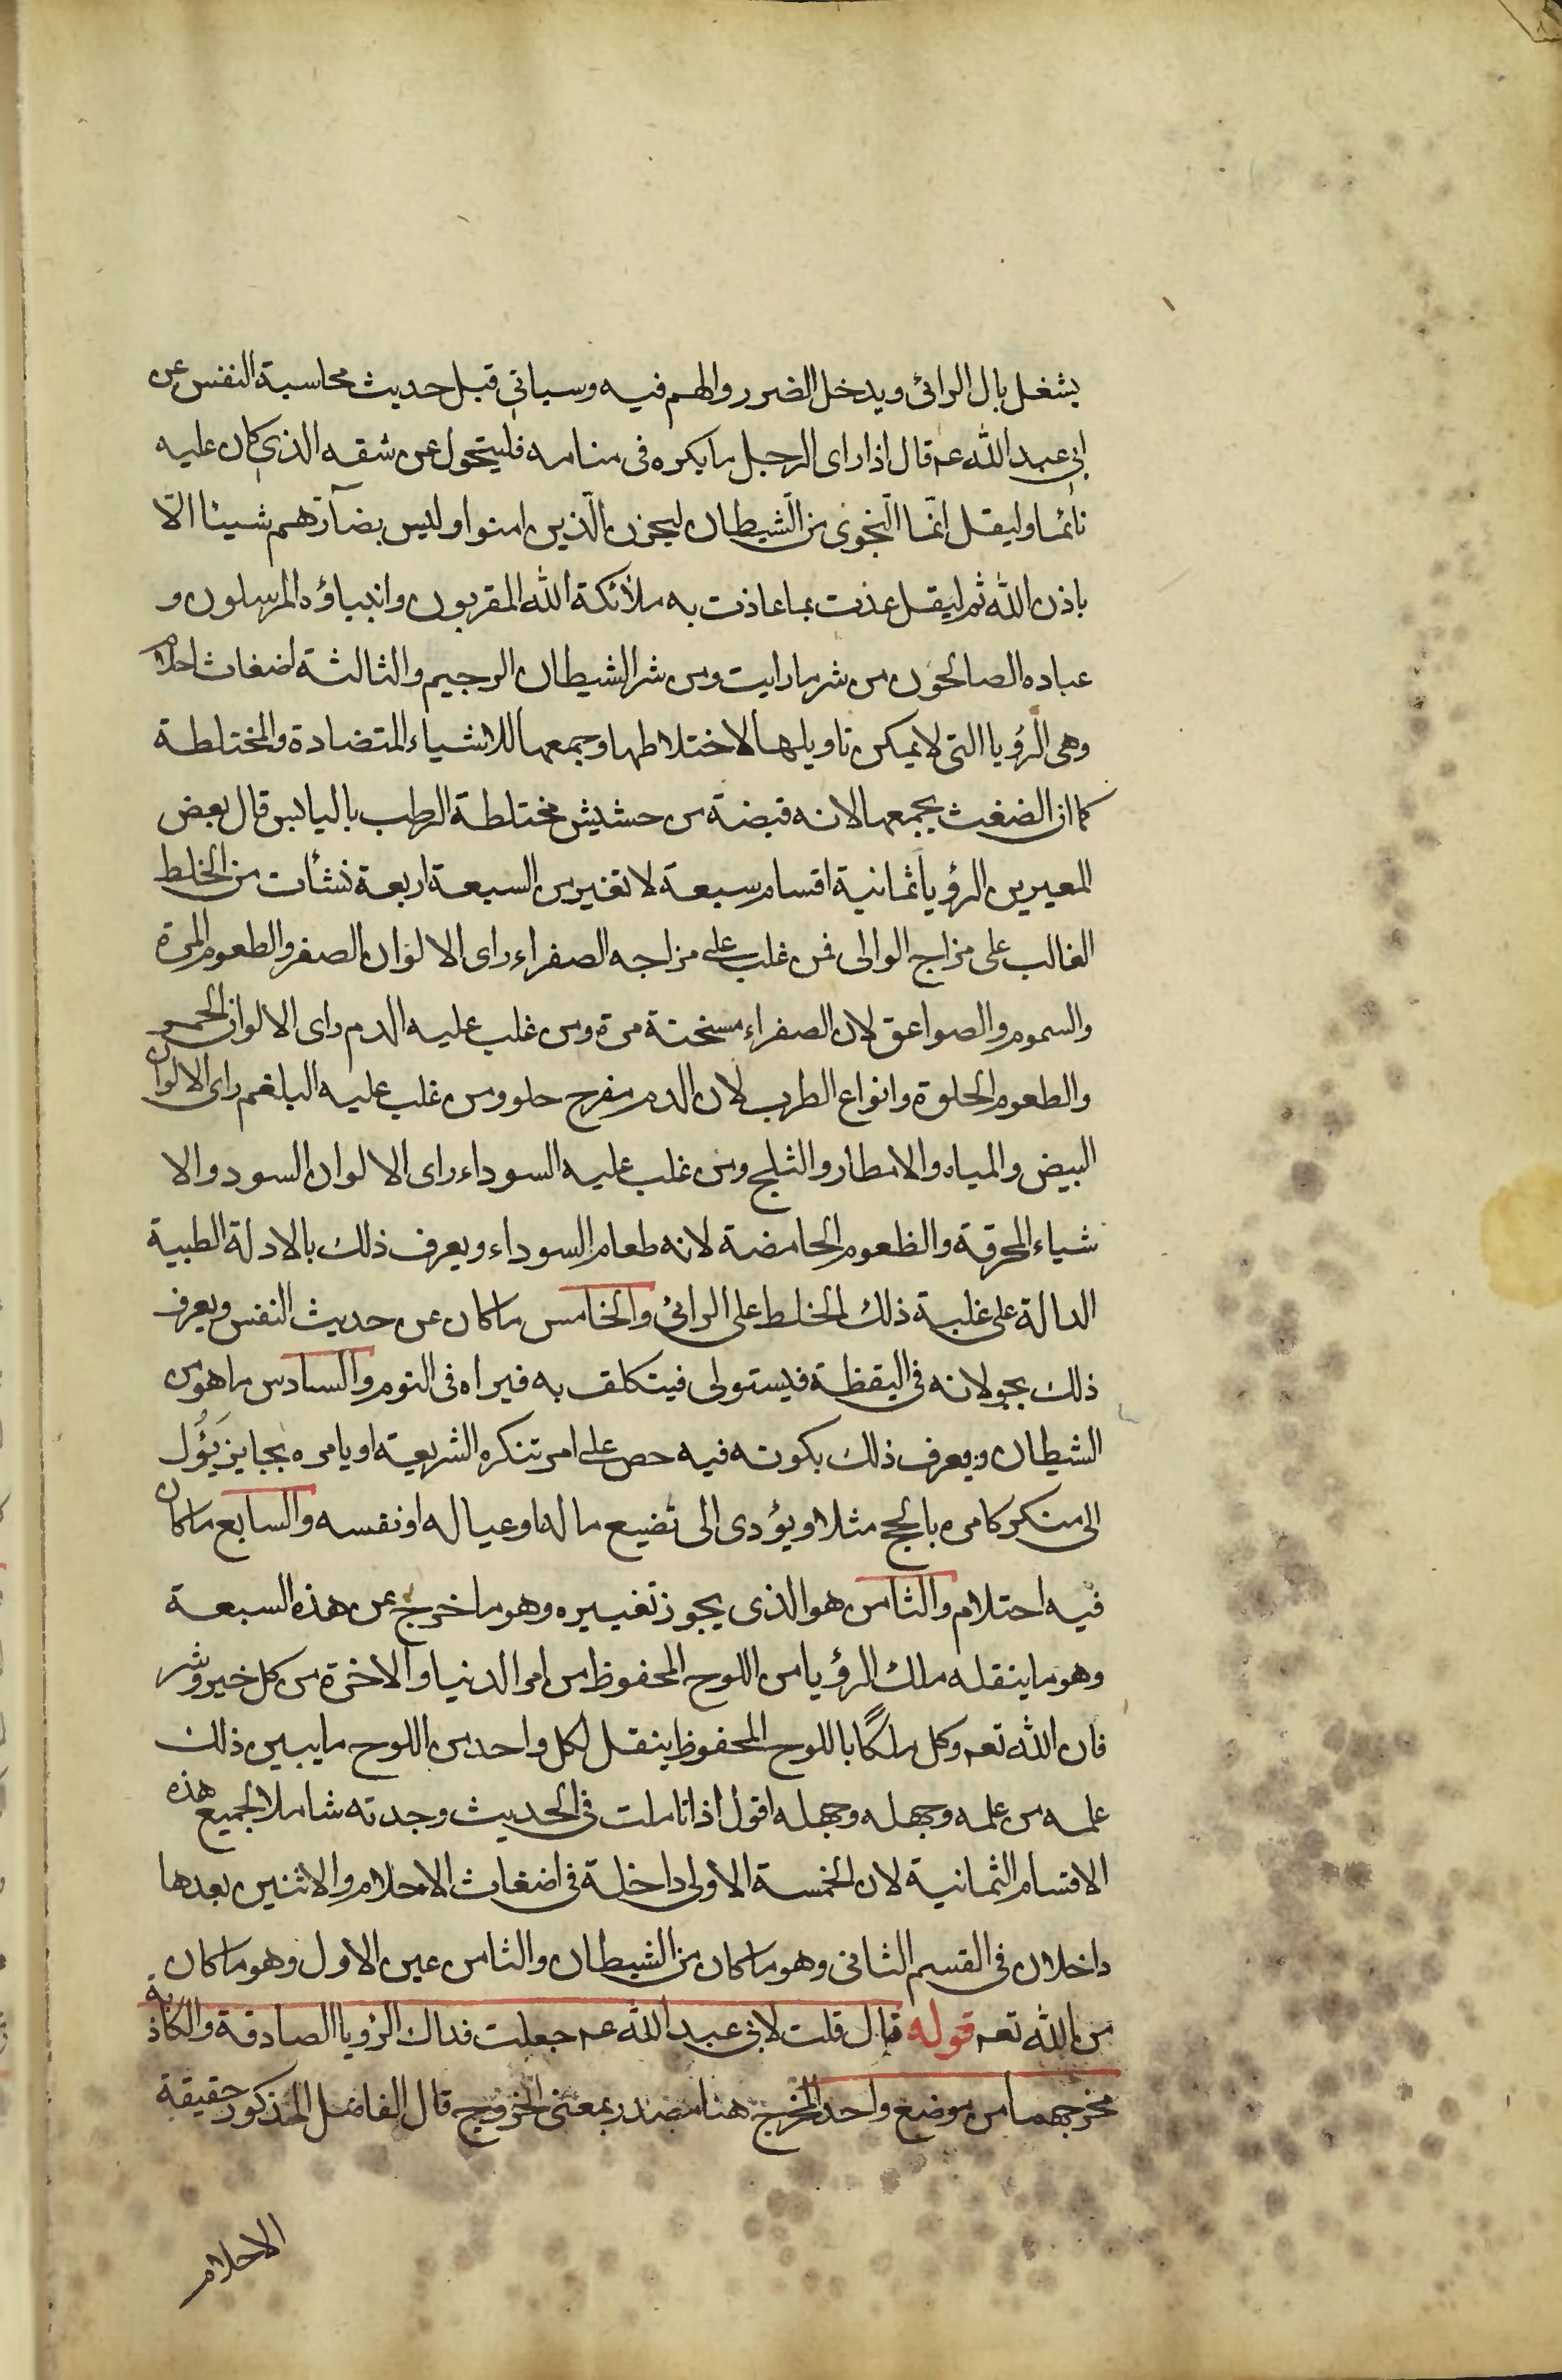 يشغل بال الرائى ويدخل الضرر والهم فيه وسياتى قبل حديث محاسبة النفس عن
ابى عبد الله عم قال اذا راى الرجل ما يكره فى منامه فليتحول عن شقه الذى كان عليه
نائما وليقل انّما النّجوى من الشّيطان ليحزن الّذين امنوا وليس بضآرّهم شيئا الّا
باذن الله ثم ليقل عذت بما عاذت به ملائكة الله المقربون وانبياؤه المرسلون و
عباده الصالحون من شر ما رايت ومن شر الشيطان الرجيم والثالثة اضغاث احلام
وهى الرؤيا التى لا يمكن تاويلها لاختلاطها وجمعها للاشياء المتضادة والمختلطة
كما ان الضغث يجمعها لانه قبضة من حشيش مختلطة الرطب باليابس قال بعض
المعبرين الرؤيا ثمانية اقسام سبعة لا تعبر من السبعة اربعة نشأت من الخلط
الغالب على مزاج الوالى فمن غلب على مزاجه الصفراء راى الالوان الصفر والطعوم المرة
والسموم والصواعق لان الصفراء مسخنة مرة ومن غلب عليه الدم راى الالوان الحمر
والطعوم الحلوة وانواع الطرب لان الدم مفرح حلو ومن غلب عليه البلغم راى الالوان
البيض والمياه والامطار والثلج ومن غلب عليه السوداء راى الالوان السود والا
شياء المحرقة والظعوم الحامضة لانه طعام السوداء ويعرف ذلك بالادلة الطبية
الدالة على غلبة ذلك الخلط على الرائى والخامس ما كان عن حديث النفس ويعرف
ذلك بجولانه فى اليقظة فيستولى فيتكلف به فيراه فى النوم والسادس ما هو من
الشيطان ويعرف ذلك بكونه فيه حص على امر تنكره الشريعة او يامره بجايز يَؤُل
الى منكر كامره بالحج مثلا ويؤدى الى تضيع ماله او عياله او نفسه والسابع ما كان
فيه احتلام والثامن هو الذى يجوز تغبيره وهو ما خرج عن هذه السبعة
وهو ما ينقله ملك الرؤيا من اللوح المحفوظ من امر الدنيا والاخرة من كل خير وشر
فان الله تعم وكل ملكًا باللوح المحفوظ ينقل لكل واحد من اللوح ما يبين ذلك
علمه من علمه وجهله وجهله اقول اذا تاملت فى الحديث وجدته شاملا لجميع هذه
الاقسام الثمانية لان الخمسة الاولى داخلة فى اضغاث الاحلام والاثنين بعدها
داخلان فى القسم الثانى وهو ما كان من الشيطان والثامن عين الاول وهو ما كان
من الله تعم قوله قال قلت لابى عبد الله عم جعلت فداك الرؤيا الصادقة والكاذبة
مخرجهما من موضع واحد المخرج هنا مصدر بمعنى الخروج قال الفاضل المذكور حقيقة
الاحلام